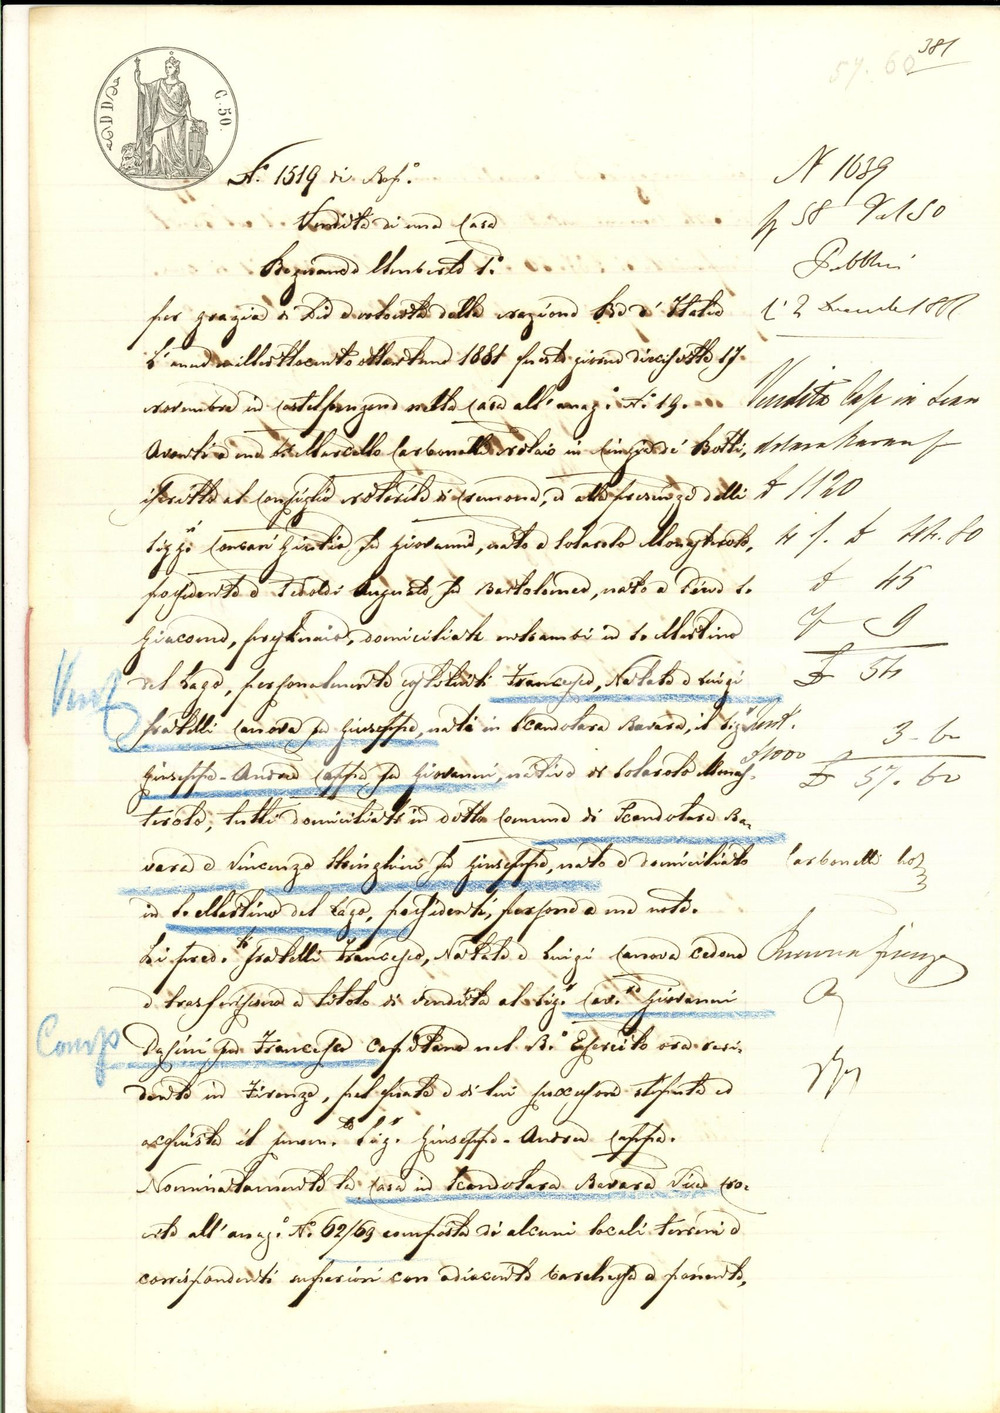 381
57.60
C. 50.
N.° 1519 di Rep.°
Vendita di una Casa
Regnando Umberto I.°
per grazia di Dio e volontà della nazione Re d'Italia
L'anno milleottocento ottantuno 1881 questo giorno diecisette 17
novembre in Castelponzone nella casa all'anag.° N.° 19.
Avanti a me D.r Marcello Carbonelli notaio in Cingia de' Botti,
iscritto al Consiglio notarile di Cremona, ed alla presenza delli
Sigg.i Giovanni, nato a Solarolo Monasterolo,
possidente e Augusto fu Bartolomeo, nato a Pieve S.
Giacomo, domiciliati entrambi in S. Martino
del Lago, personalmente costituiti Francesco, Natale e Luigi
fratelli Canova fu Giuseppe, nati in Scandolara Ravara, il Sig.r
Giuseppe-Andrea Cappa fu Giovanni, nativo di Solarolo Monas-
terolo, tutti domiciliati in detto Comune di Scandolara Ra-
vara e Vincenzo fu Giuseppe, nato e domiciliato
in S. Martino del Lago, possidenti, persone a me note.
Li pred.ti fratelli Francesco, Natale e Luigi Canova cedono
e trasferiscono a titolo di vendita al Sig.r Cav.re Giovanni
fu Francesco Capitano nel R.° Esercito ora resi-
dente in Firenze, pel quale e di lui successori stipula ed
acquista il Sig.r Giuseppe-Andrea Cappa.
Nominatamente la casa in Scandolara Ravara Vico
all'anag.° N.° 62/69 composta di alcuni locali terreni e
corrispondenti superiori con adiacente barchessa a ponente,
Vend
Comp
N 1639
58 Vol 50
Pubblici
li 2 Dicembre 1881
Vendita Casa in Scan
dolara Ravara
£ 1120
£ 45
9
£ 54
3-60
£ 57.60
Carbonelli